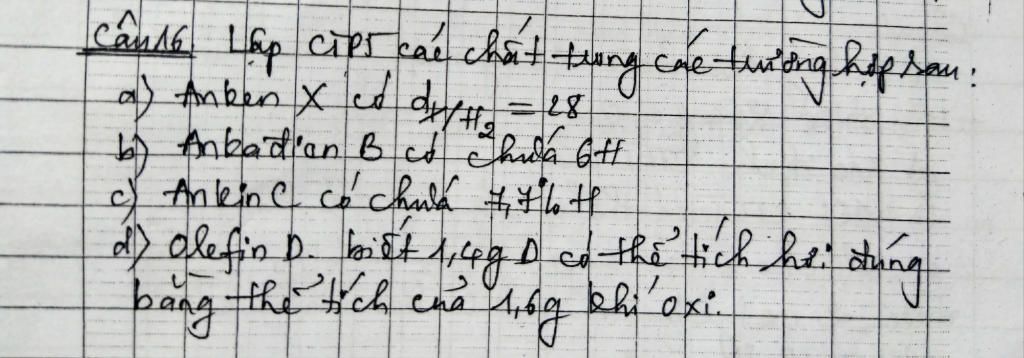 Câu 16 Lập CTPT các chất trong các trường hợp sau:
a) Anken X có dX/H2 = 28
b) Ankađien B có chứa 6H
c) Ankin C có chứa 7,7% H
d) Olefin D. biết 1,4g D có thể tích hơi đúng
bằng thể tích của 1,6g khí oxi.